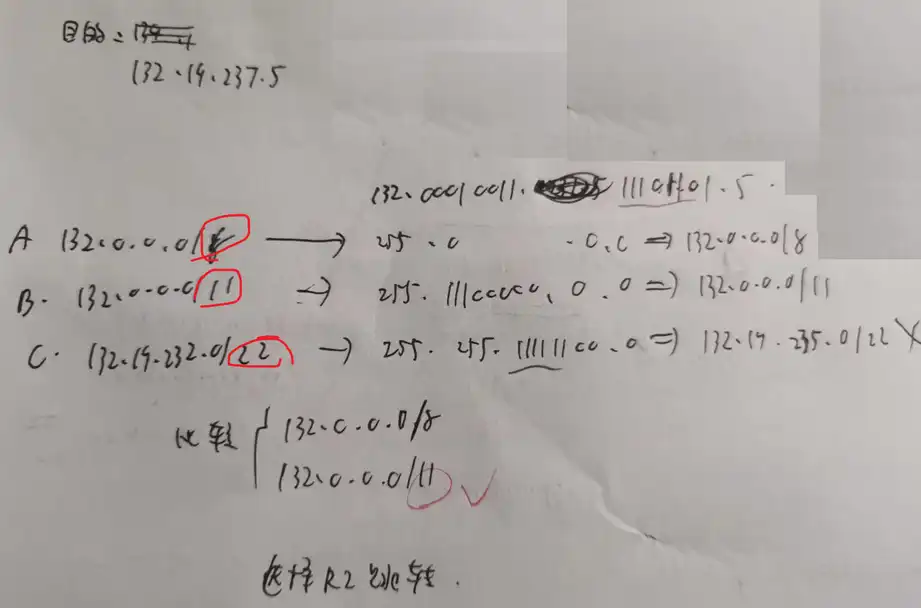 目的：
132.19.237.5
132.00010011. 11101101.5.
A 132.0.0.0/8 → 255.0 .0.0 ⇒ 132.0.0.0/8
B. 132.0.0.0/11 → 255.11100000.0.0 ⇒ 132.0.0.0/11
C. 132.19.232.0/22 → 255.255.11111100.0 ⇒ 132.19.235.0/22 X
比较 { 132.0.0.0/8
132.0.0.0/11 √
选择R2跳转.